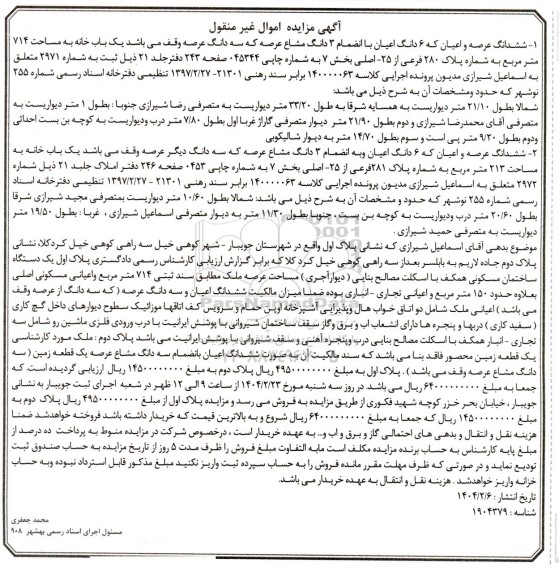 آگهی مزایده اموال غیر منقول
۱- ششدانگ عرصه و اعیان که ۶ دانگ اعیان با انضمام ۳ دانگ مشاع عرصه که سه دانگ عرصه وقف می باشد یک باب خانه به مساحت ۷۱۴
متر مربع به شماره پلاک ۲۸۰ فرعی از ۲۵- اصلی بخش ۷ به شماره چاپی ۰۴۵۳۴۴ صفحه ۲۴۳ دفترجلد ۲۱ ذیل ثبت به شماره ۲۹۷۱ متعلق
به اسماعیل شیرازی مدیون پرونده اجرایی کلاسه ۱۴۰۰۰۰۰۶۳ برابر سند رهنی ۲۱۳۰۱-۱۳۹۷/۲/۲۷ تنظیمی دفترخانه اسناد رسمی شماره ۲۵۵
نوشهر که حدود ومشخصات آن به شرح ذیل می باشد:
شمالا بطول ۲۱/۱۰ متر دیواریست به همسایه شرقا به طول ۳۳/۲۰ متر دیواریست به متصرفی رضا شیرازی جنوبا : بطول ۱ متر دیواریست به
متصرفی آقای محمدرضا شیرازی و دوم بطول ۲۱/۹۰ متر دیوار متصرفی گاراژ غربا اول بطول ۷/۸۰ متر درب ودیواریست به کوچه بن بست احداثی
ودوم بطول ۹/۲۰ متر پی است و سوم بطول ۱۴/۷۰ متر به دیوار شالیکوبی
۲- ششدانگ عرصه و اعیان که ۶ دانگ اعیان وبه انضمام ۳ دانگ مشاع عرصه که سه دانگ دیگر عرصه وقف می باشد یک باب خانه به
مساحت ۲۱۳ متر مربع به شماره پلاک ۲۸۱فرعی از ۲۵- اصلی بخش ۷ به شماره چاپی ۰۴۵۳ صفحه ۲۴۶ دفتر املاک جلد ۲۱ ذیل شماره
۲۹۷۲ متعلق به اسماعیل شیرازی مدیون پرونده اجرایی کلاسه ۱۴۰۰۰۰۰۶۳ برابر سند رهنی ۲۱۳۰۱ - ۱۳۹۷/۲/۲۷ تنظیمی دفترخانه اسناد
رسمی شماره ۲۵۵ نوشهر که حدود و مشخصات آن به شرح ذیل می باشد: شمالا بطول ۱۰/۶۰ متر دیواریست بمتصرفی مجید شیرازی شرقا
بطول ۲۰/۶۰ متر درب ودیواریست به کوچه بن بست جنوبا بطول ۱۱/۳۰ متر به دیوار متصرفی اسماعیل شیرازی ، غربا : بطول ۱۹/۵۰ متر
دیواریست به متصرفی حمید شیرازی .
موضوع بدهی آقای اسماعیل شیرازی که نشانی پلاک اول واقع در شهرستان جویبار - شهر کوهی خیل سه راهی کوهی خیل کردکلا، نشانی
پلاک دوم جاده لاریم به بابلسر بعداز سه راهی کوهی خیل کرد کلا که برابر گزارش ارزیابی کارشناس رسمی دادگستری پلاک اول یک دستگاه
ساختمان مسکونی همکف با اسکلت مصالح بنایی ( دیوارآجری ) مساحت عرصه ملک مطابق سند ثبتی ۷۱۴ متر مربع واعیانی مسکونی اصلی
بعلاوه حدود ۱۵۰ متر مربع و اعیانی تجاری - انباری بوده ضمنا میزان مالکیت ششدانگ اعیان و سه دانگ عرصه ( که سه دانگ از عرصه وقف
می باشد ) اعیانی ملک شامل دو اتاق خواب هال وپذیرایی آشپزخانه اوپن حمام و سرویس کف اتاقها موزائیک سطوح دیوارهای داخل گچ کاری
( سفید کاری ) دربها و پنجره ها دارای انشعاب اب و برق وگاز سقف ساختمان شیروانی با پوشش ایرانیت با درب ورودی فلزی ماشین رو شامل سه
تجاری - انبار همکف با اسکلت مصالح بنایی درب وپنجره آهنی و سقف شیروانی با پوشش ایرانیت می باشد پلاک دوم : ملک مورد کارشناسی
یک قطعه زمین محصور فاقد بنا می باشد که سند مالکیت آن بصورت ششدانگ اعیان بانضمام سه دانگ مشاع عرصه یک قطعه زمین ( سه
دانگ مشاع عرصه وقف می باشد ) . پلاک اول به مبلغ ۴۹۵۰۰۰۰۰۰۰۰ ریال پلاک دوم به مبلغ ۱۴۵۰۰۰۰۰۰۰۰ ریال ارزیابی گردیده است که
جمعا به مبلغ ۶۴۰۰۰۰۰۰۰۰۰ ریال می باشد. در روز سه شنبه مورخ ۱۴۰۴/۲/۲۳ از ساعت ۹ الی ۱۲ ظهر در شعبه اجرای ثبت جویبار به نشانی
جویبار ، خیابان بحر خزر کوچه شهید فکوری از طریق مزایده به فروش می رسد و مزایده پلاک اول از مبلغ ۴۹۵۰۰۰۰۰۰۰۰ ریال پلاک دوم به
مبلغ ۱۴۵۰۰۰۰۰۰۰۰ ریال که جمعا به مبلغ ۶۴۰۰۰۰۰۰۰۰۰ ریال شروع و به بالاترین قیمت که خریدار داشته باشد فروخته خواهدشد ضمنا
هزینه نقل و انتقال و بدهی های احتمالی گاز و برق و اب و.. به عهده خریدار است ، درخصوص شرکت در مزایده منوط به پرداخت ده درصد از
مبلغ پایه کارشناس به حساب برنده مزایده مکلف است مابه التفاوت مبلغ فروش را ظرف مدت ۵ روز از تاریخ مزایده به حساب صندوق ثبت
تودیع نماید و در صورتی که ظرف مهلت مقرر مانده فروش را به حساب سپرده ثبت واریز نکنید مبلغ مذکور قابل استرداد نبوده وبه حساب
خزانه واریز خواهدشد . هزینه نقل و انتقال به عهده خریدار می باشد.
تاریخ انتشار : ۱۴۰۴/۲/۶
شناسه : ۱۹۰۴۳۷۹
محمد جعفری
مسئول اجرای اسناد رسمی بهشهر ۹۰۸